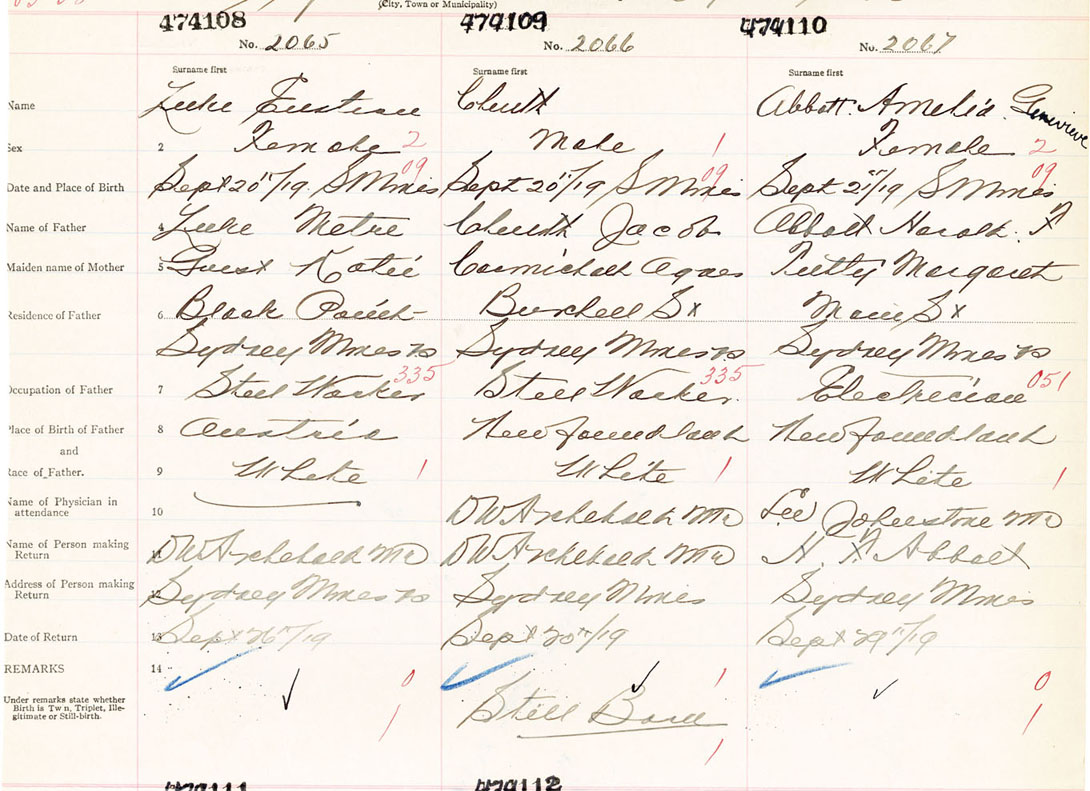 (City, Town or Municipality)
474108 474109 474110
No. 2065 No. 2066 No. 2067
Surname first Surname first Surname first
Name Luke Abbott Amelia Genevieve
Sex 2 Female 2 Male 1 Female 2
09 09 09
Date and Place of Birth Sept 20th/19 S Mines Sept 20th/19 S Mines Sept 21st/19 S Mines
Name of Father 4 Luke Metre Jacob Abbott Harold
Maiden name of Mother 5 Guest Katie Carmichael Agnes Tutty Margaret
Residence of Father 6 Black Point Burchell St Main St
Sydney Mines NS Sydney Mines NS Sydney Mines NS
Occupation of Father 7 Steel Worker 335 Steel Worker 335 Electrician 051
Place of Birth of Father 8 Austria Newfoundland Newfoundland
and
Race of Father. 9 White 1 White 1 White 1
Name of Physician in
attendance 10 DW Archibald MD Johnstone MD
Name of Person making
Return 11 DW Archibald MD DW Archibald MD H. Abbott
Address of Person making
Return 12 Sydney Mines NS Sydney Mines Sydney Mines
Date of Return 13 Sept 26th/19 Sept 20th/19 Sept 29th/19
REMARKS 14
0 1 0
Under remarks state whether
Birth is Twin, Triplet, Ille-
gitimate or Still-birth.
Still Born
1 1 1
474111 474112